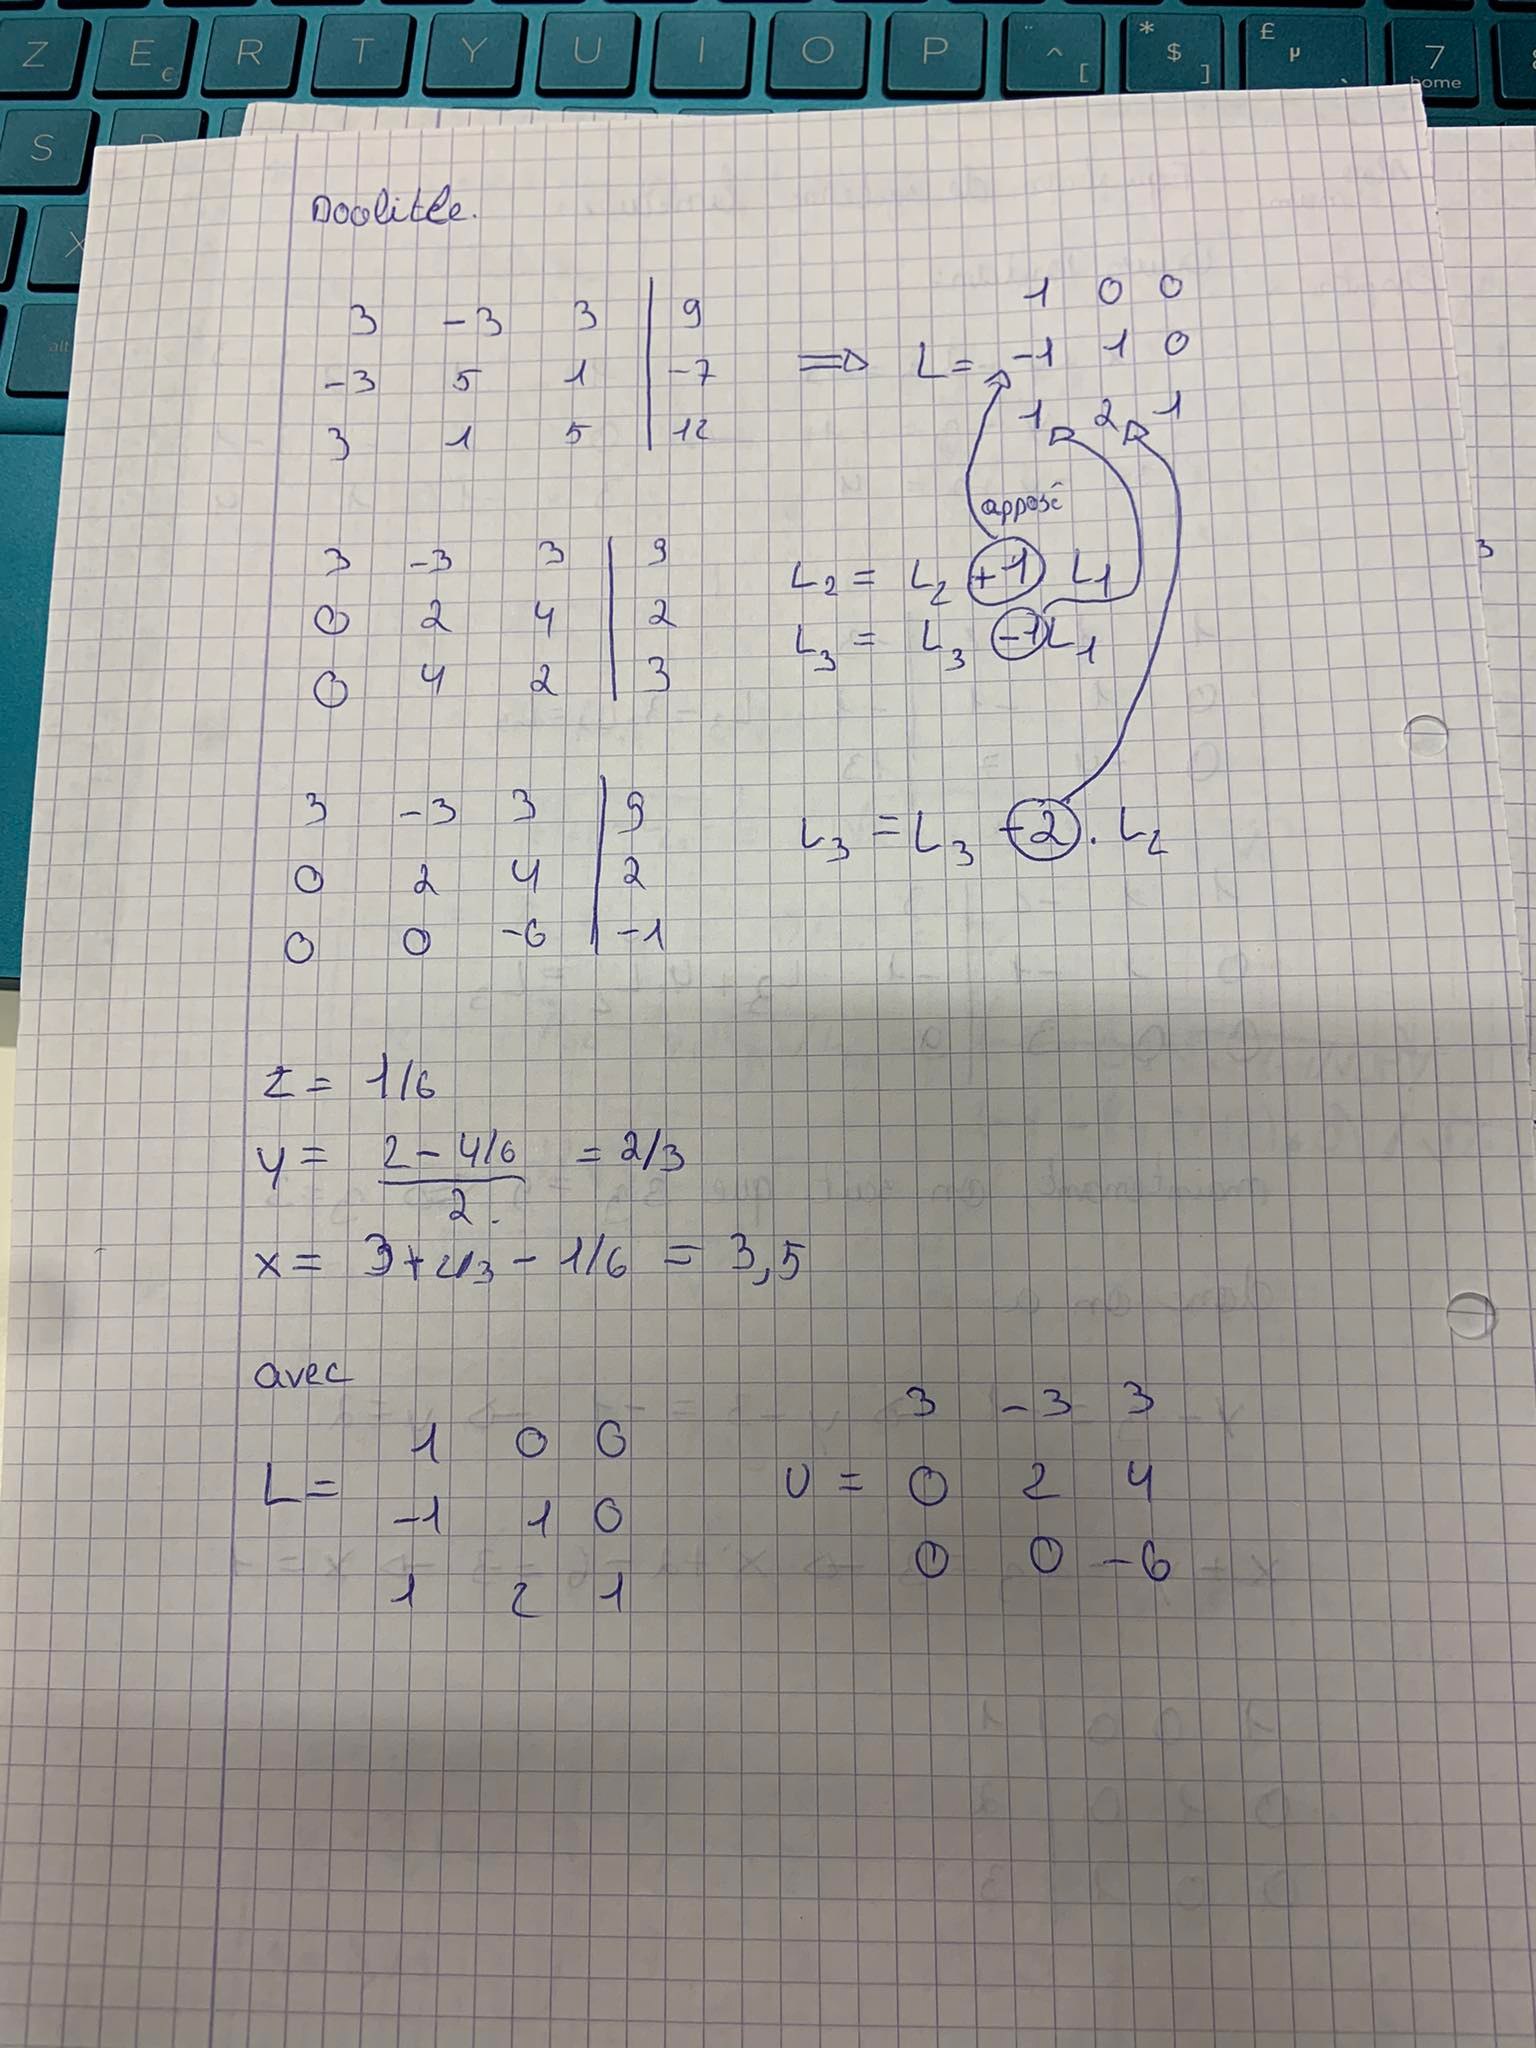 Z E € R T Y U I O P ¨ ^ [ * $ ] £ µ ` 7 home
S
X
alt
Doolitle.
3 -3 3 | 9
-3 5 1 | -7
3 1 5 | 12
=> L =
1 0 0
-1 1 0
1 2 1
opposé
3 -3 3 | 9
0 2 4 | 2
0 4 2 | 3
L2 = L2 +1 L1
L3 = L3 -1 L1
3 -3 3 | 9
0 2 4 | 2
0 0 -6 | -1
L3 = L3 -2 . L2
z = 1/6
y = (2 - 4/6) / 2. = 2/3
x = 3 + 2/3 - 1/6 = 3,5
avec
L =
1 0 0
-1 1 0
1 2 1
U =
3 -3 3
0 2 4
0 0 -6
3